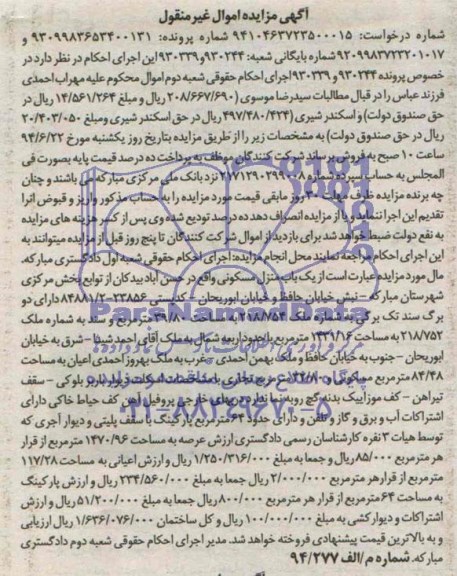 آگهی مزایده اموال غیر منقول
شماره درخواست: ۹۴۱۰۴۶۳۷۲۳۵۰۰۰۱۵ شماره پرونده: ۹۳۰۹۹۸۳۶۵۳۴۰۰۱۳۱ و
۹۲۰۹۹۸۳۷۲۳۲۰۱۰۱۷ شماره بایگانی شعبه: ۹۳۰۲۴۴ و ۹۳۰۳۳۹ این اجرای احکام در نظر دارد در
خصوص پرونده ۹۳۰۲۴۴ و ۹۳۰۳۳۹ اجرای احکام حقوقی شعبه دوم اموال محکوم علیه مهراب احمدی
فرزند عباس را در قبال مطالبات سیدرضا موسوی (۲۰۸/۶۶۷/۶۹۰ ریال و مبلغ ۱۴/۵۶۱/۲۶۴ ریال در
حق صندوق دولت) و اسکندر شیری (۴۹۷/۴۸۰/۴۲۴ ریال در حق اسکندر شیری و مبلغ ۲۰/۴۰۳/۰۵۰
ریال در حق صندوق دولت) به مشخصات زیر را از طریق مزایده بتاریخ روز یکشنبه مورخ ۹۴/۶/۲۲
ساعت ۱۰ صبح به فروش برساند شرکت کنندگان موظف به پرداخت ده درصد قیمت پایه بصورت فی
المجلس به حساب سپرده شماره ۲۷۷۱۲۹۰۲۹۹۰۰۸ نزد بانک ملی مرکزی مبارکه می باشند و چنان
چه برنده مزایده ظرف مهلت روز مابقی قیمت مورد مزایده را به حساب مذکور واریز و قبوض انرا
تقدیم این اجرا ننماید و یا از مزایده انصراف دهد ده درصد تودیع شده وی پس از کسر هزینه های مزایده
به نفع دولت ضبط خواهد شد برای بازدید از اموال شرکت کنندگان تا پنج روز قبل از مزایده میتوانند به
این اجرای احکام مراجعه نمایند محل انجام مزایده: اجرای احکام حقوقی شعبه اول دادگستری مبارکه.
مال مورد مزایده عبارت است از یک باب منزل مسکونی واقع در حسن آباد بیدکان از توابع بخش مرکزی
شهرستان مبارکه – نبش خیابان حافظ و خیابان ابوریحان – کدپستی ۲۳۸۵۶-۸۴۸۸۱ دارای دو
برگ سند تک برگی به شماره ملک ۲۱۸/۷۵۴ به مساحت متر مربع و سند به شماره ملک
۲۱۸/۷۵۲ به مساحت ۱۳۳۱/۱۶ با حدود اربعه شمال به ملک آقای احمد شیدا – شرق به خیابان
ابوریحان – جنوب به خیابان حافظ و ملک بهمن احمدی – غرب به ملک بهروز احمدی اعیان به مساحت
۸۴/۴۸ متر مربع مسکونی و متر مربع تجاری با مشخصات دیوار بلوکی – سقف
تیرآهن – کف موزاییک بدنه گچ رو به نما ندارد در بهای خارجی پروفیل آهن کف حیاط خاکی دارای
اشتراکات آب و برق و گاز و تلفن و دارای حدود ۶۴ متر مربع پارکینگ با سقف پلیتی و دیوار آجری که
توسط هیات ۳ نفره کارشناسان رسمی دادگستری ارزش عرصه به مساحت ۱۴۷۰/۹۶ متر مربع از قرار
هر متر مربع ۸۵/۰۰۰ ریال و جمعا به مبلغ ۱/۲۵۰/۳۱۶/۰۰۰ ریال و ارزش اعیانی به مساحت ۱۱۷/۲۸
متر مربع از قرار هر متر مربع ۲/۰۰۰/۰۰۰ ریال جمعا به مبلغ ۲۳۴/۵۶۰/۰۰۰ ریال و ارزش پارکینگ
به مساحت ۶۴ متر مربع از قرار هر متر مربع ۸۰۰/۰۰۰ ریال جمعا به مبلغ ۵۱/۲۰۰/۰۰۰ ریال و ارزش
اشتراکات و دیوارکشی به مبلغ ۱۰۰/۰۰۰/۰۰۰ ریال و کل ساختمان ۱/۶۳۶/۰۷۶/۰۰۰ ریال ارزیابی
و به بالاترین قیمت پیشنهادی فروخته خواهد شد. مدیر اجرای احکام حقوقی شعبه دوم دادگستری
مبارکه. شماره م/الف ۹۴/۲۷۷
ParsNamadData
پایگاه اطلاع رسانی مناقصات و مزایدات
۰۲۱-۸۸۳۴۹۶۷۰-۵